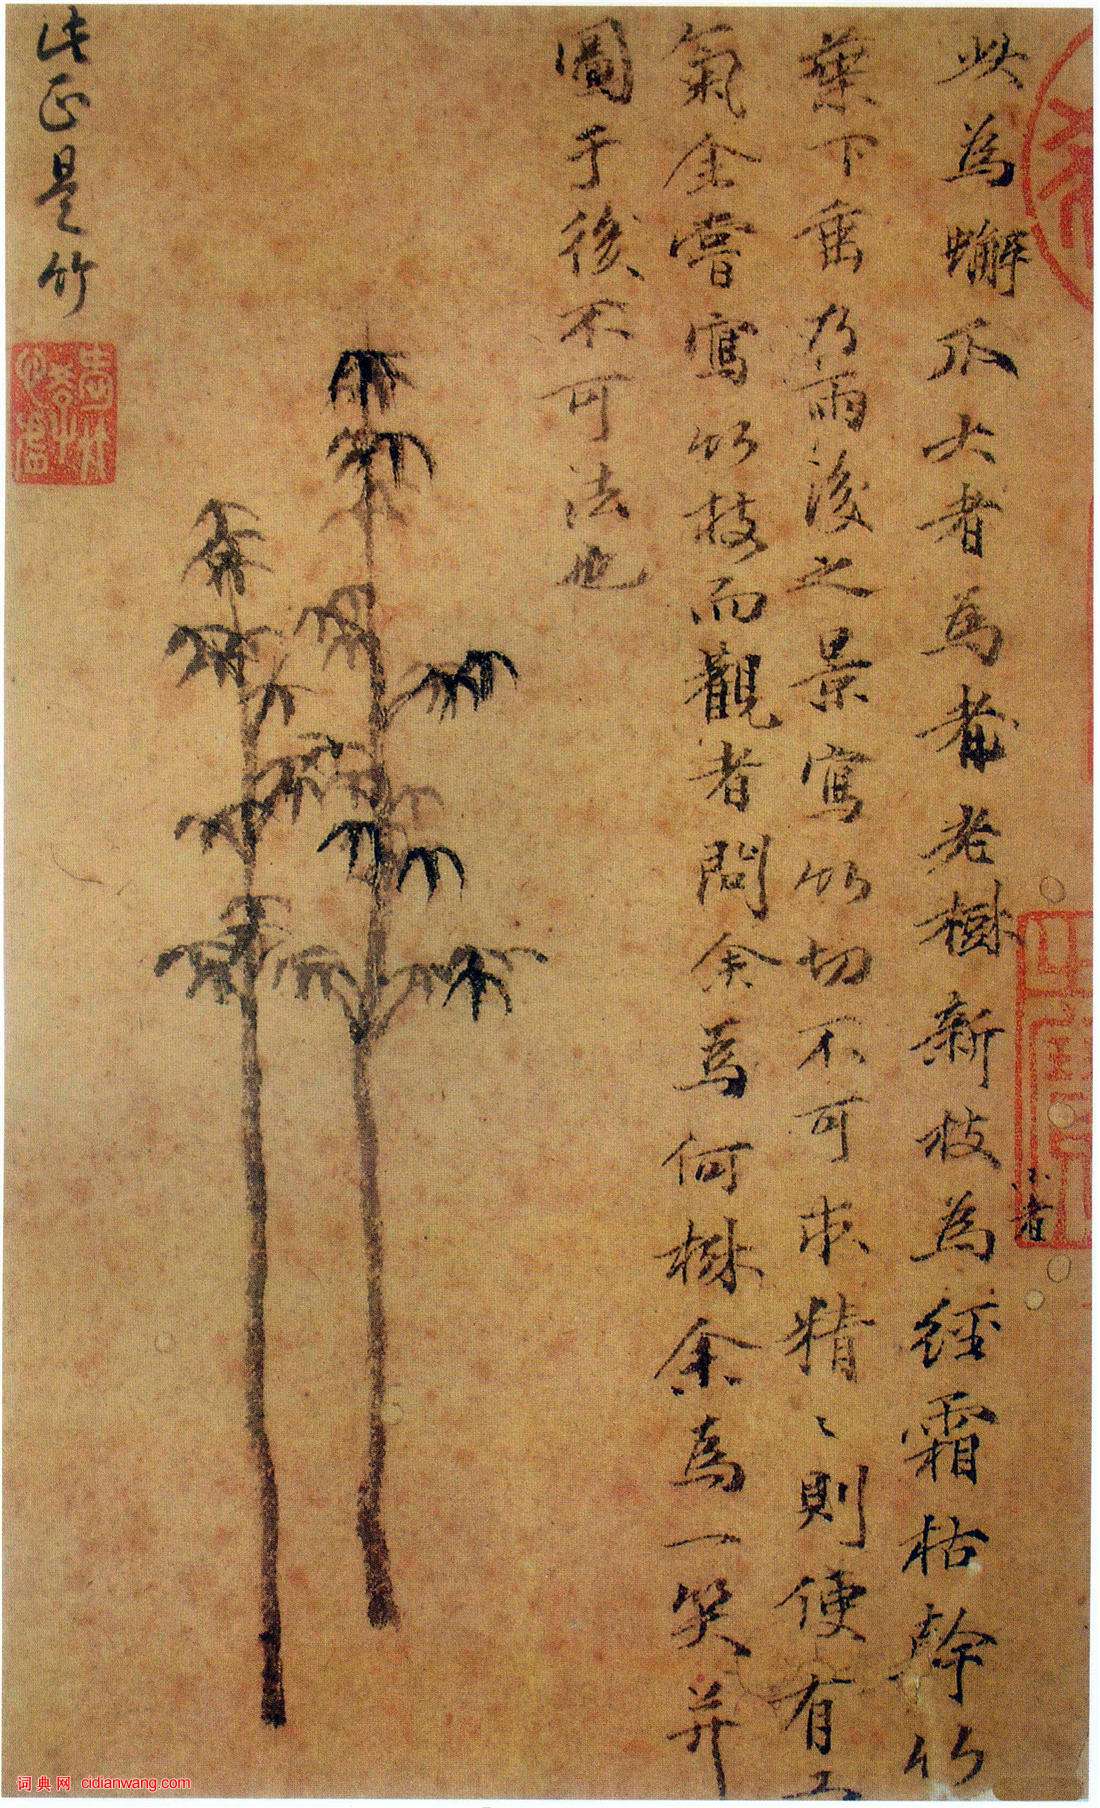 此為蠏爪大者為者老樹新枝為經霜枯幹竹
小者
葉下垂乃雨後之景寫竹切不可求精〻則便有工
氣余嘗寫竹枝而觀者問余為何樹余為一笑并
圖于後不可法也
此正是竹
词典网 cidianwang.com